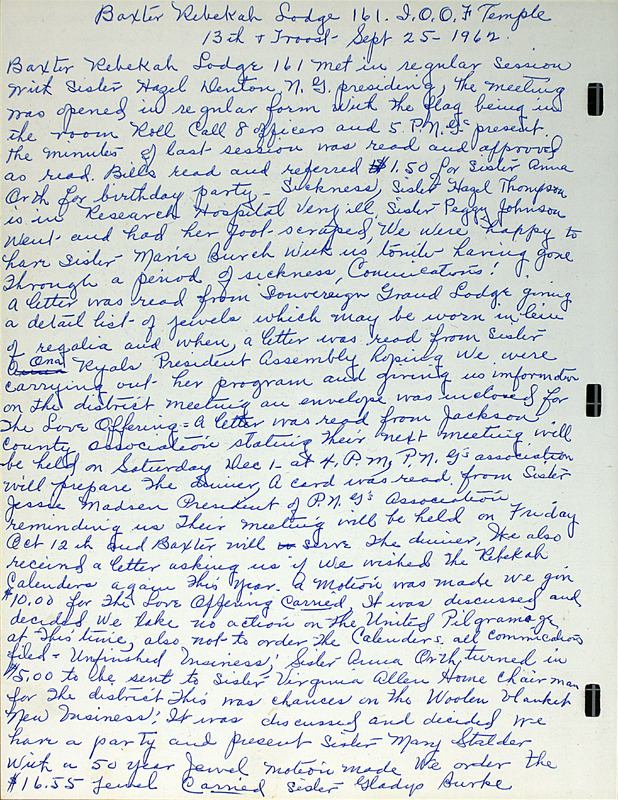 Baxter Rebekah Lodge 161. I.O.O.F Temple
13th & Troost - Sept 25 - 1962.
Baxter Rebekah Lodge 161 met in regular session
with Sister Hazel Denton, N.G. presiding, the meeting
was opened in regular form with the flag being in
the room Roll Call 8 officers and 5 P.N.G's present.
the minutes of last session was read and approved
as read. Bills read and referred $1.50 for Sister Anna
Orth for birthday party - Sickness, Sister Hazel Thompson
is in Research Hospital very ill, Sister Peggy Johnson
went and had her foot scraped, We were happy to
have Sister Marie Burch with us tonite having gone
through a period of sickness, Comunications!
a letter was read from Souvereign Grand Lodge giving
a detail list of jewels which may be worn in leiu
of regalia and when, a letter was read from Sister
Ona Ryals President Assembly hoping we were
carrying out her program and giving us imformation
on the district meeting an envelope was inclosed for
the Love Offering = A letter was read from Jackson
County association stating their next meeting will
be held on Saturday Dec 1 - at 4, P.M, P.N.G's association
will prepare the dinner, A card was read from Sister
Jessie Madsen President of P.N.G's Association
reminding us their meeting will be held on Friday
Oct 12th and Baxter will serve the dinner, We also
recived a letter asking us if we wished the Rebekah
Calenders again this year. a motion was made we give
$10.00 for the Love Offering Carried, It was discussed and
decided we take no action on the United Pilgramage
at this time, also not to order the Calenders. all comunications
filed = Unfinished Business! Sister Anna Orth turned in
$5.00 to the sent to Sister Virginia Allen Home Chairman
for the district this was chances on the Woolen blanket
New Business! It was discussed and decided we
have a party and present Sister Mary Stalder
with a 50 year Jewel motion made we order the
$16.55 jewel Carried Sister Gladys Burke